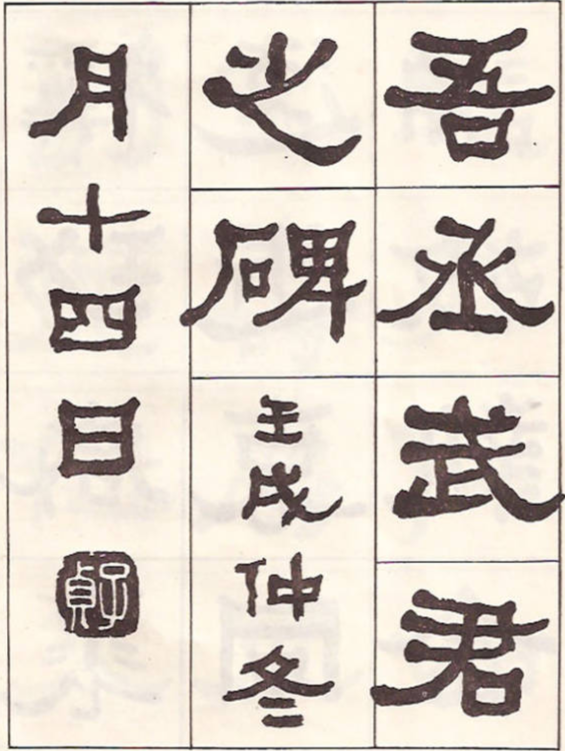 吾丞武君
之碑壬戌仲冬
月十四日